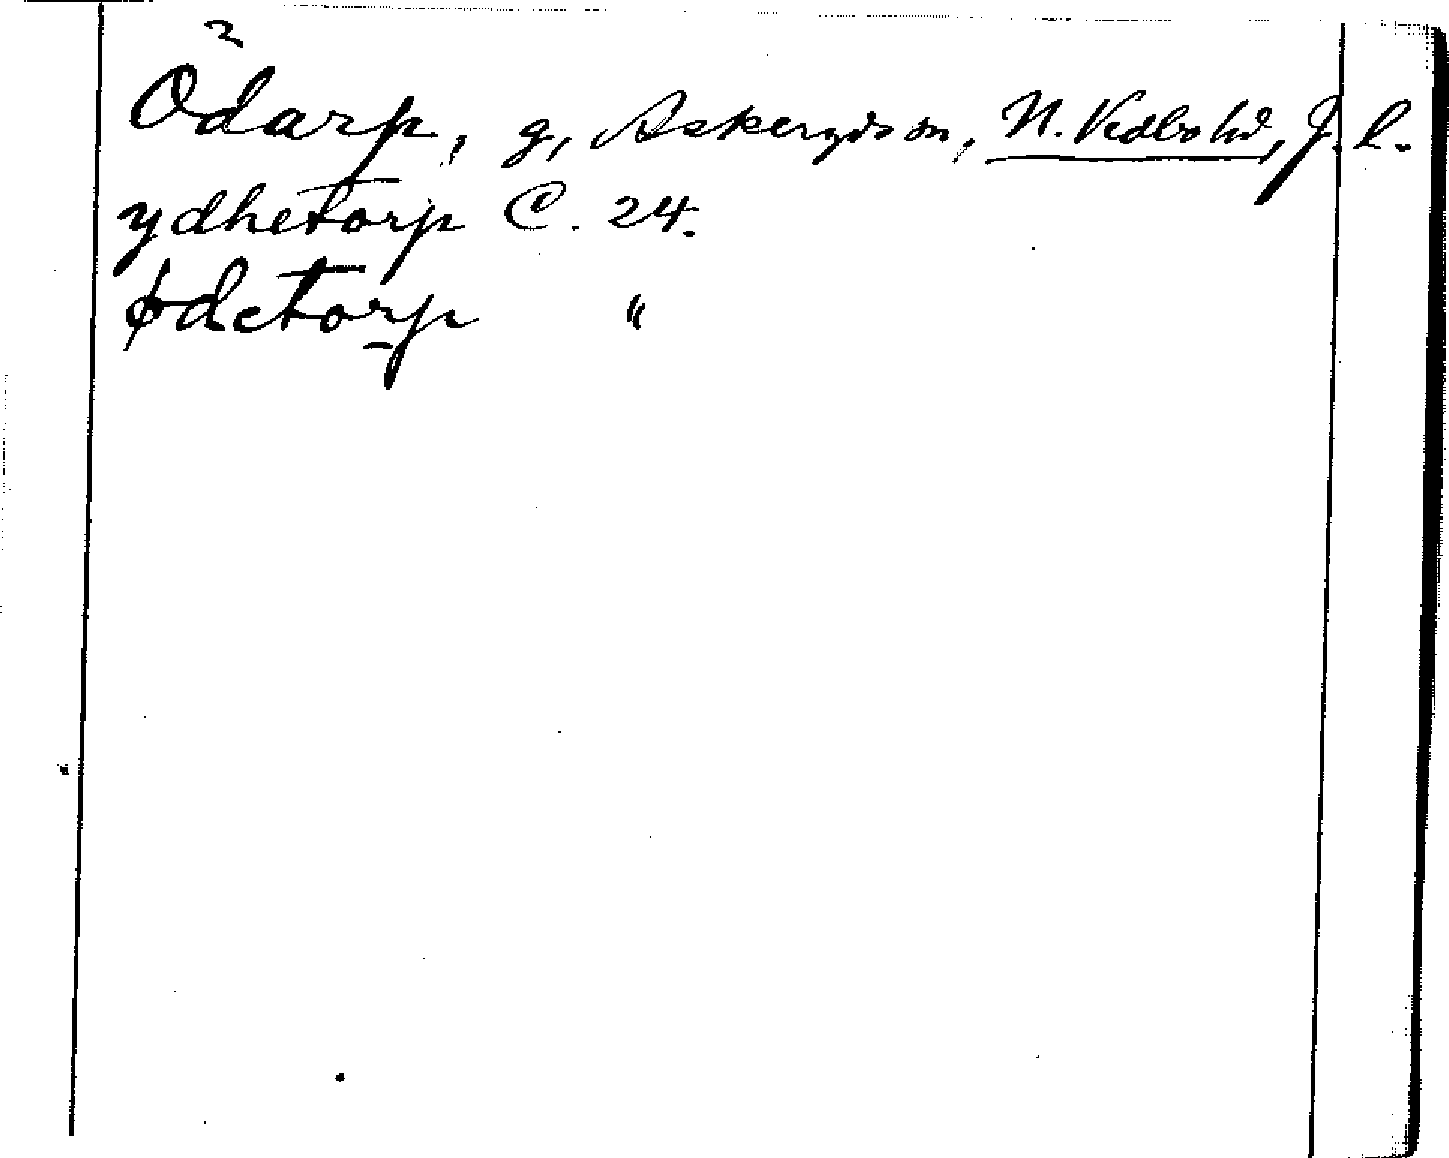 Ödarp, g, Askeryds sn, N. Vedbo hd, J. l.
ydhetorp C. 24.
ødetorp "